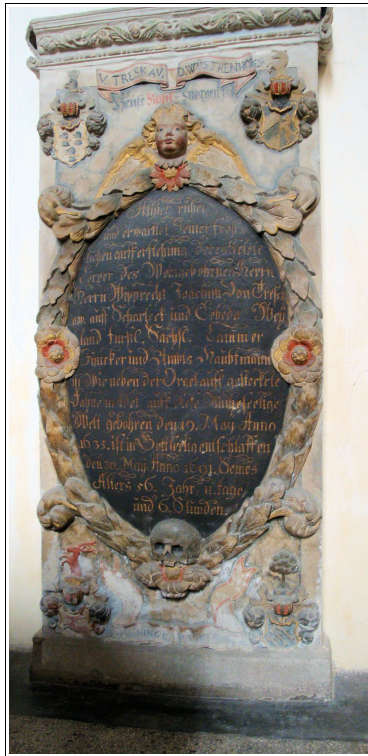 V. TRESKAV. D.WVSTRENHOFF
Heute Morgen
Alhier ruhet
und erwartet seiner fröh
lichen aufferstehung der entseelete
Cörper des Wohlgebohrnen Herrn
Herrn Wiprecht Joachim Von Tresch
auff Scharteck und Wey
land fürstl. Sächs. Cammer
Juncker und Ambts Haubtmann
wie neben der Orgel auff gesteckete
Fahne auff diese
Welt gebohren den 19. May Anno
1635. ist in Gott seelig entschlaffen
den 30. May Anno 1691. Seines
Alters 56. Jahr, 11. tage,
und 6. Stunden.